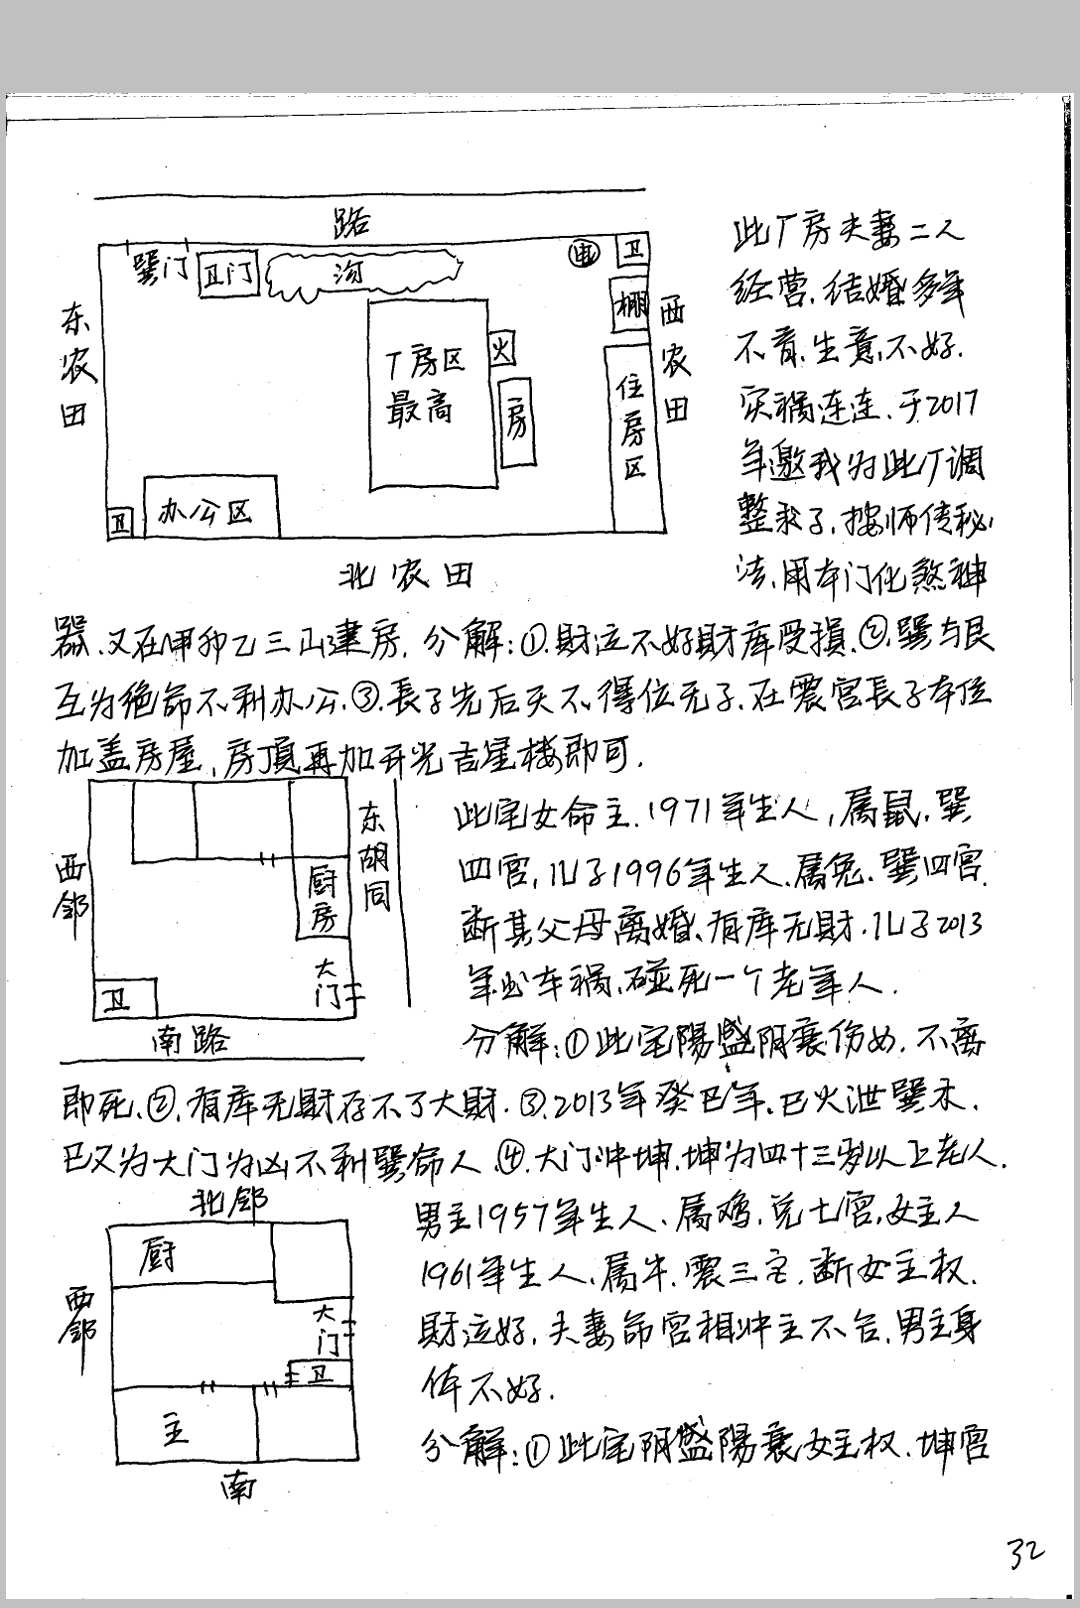 路
巽门
卫门
沟
电
卫
棚
东农田
厂房区
最高
火
房
住房区
西农田
卫
办公区
北农田
此厂房夫妻二人
经营、结婚多年
不育、生意不好.
灾祸连连、于2017
年邀我为此厂调
整求子、按师传秘
法、用本门化煞神
器、又在甲卯乙三山建房. 分解:①.財运不好財库受損.②.巽与艮
互为绝命不利办公.③.長子先后天不得位无子.在震宫長子本位
加盖房屋、房頂再加开光吉星楼即可.
西邻
东胡同
厨房
大门
卫
南路
此宅女命主.1971年生人,属鼠.巽
四宫,儿子1996年生人.属兔.巽四宫.
断其父母离婚、有库无財.儿子2013
年出车祸、碰死一个老年人.
分解:①此宅陽盛阴衰伤女.不离
即死.②.有库无財存不了大財.③.2013年癸巳年.巳火泄巽木.
巳又为大门为凶不利巽命人.④.大门冲坤.坤为四十三岁以上老人.
北邻
厨
西邻
大门
卫
主
南
男主1957年生人、属鸡.兑七宫.女主人
1961年生人、属牛.震三宅.断女主权.
財运好.夫妻命宫相冲主不合.男主身
体不好.
分解:①此宅阴盛陽衰女主权.坤宫
32